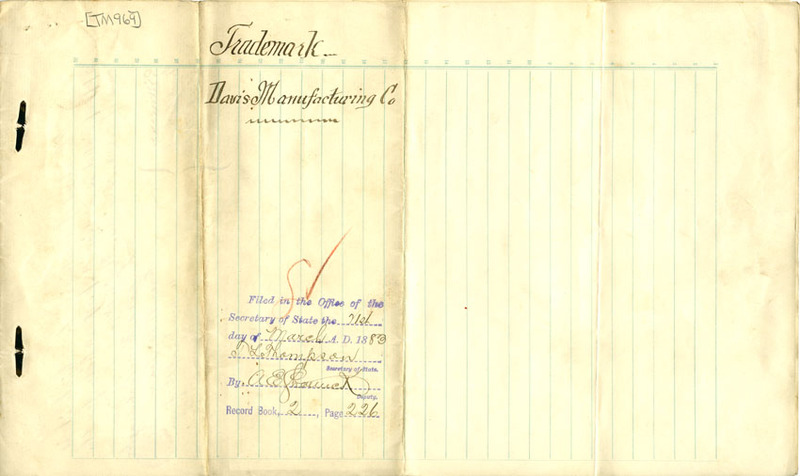 [TM964]
Trademark
Davis Manufacturing Co
Filed in the Office of the
Secretary of State the 21st
day of March A. D. 1883
T L Thompson
Secretary of State.
By A E
Deputy.
Record Book, 2, Page 226